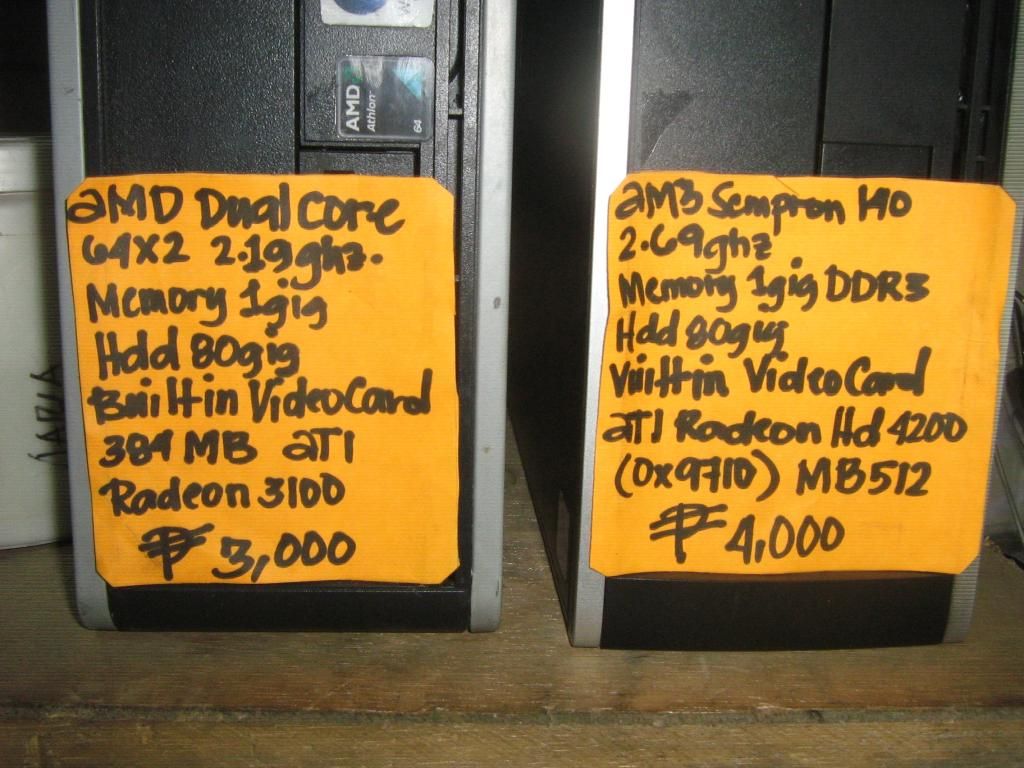 AMD
Athlon
64
aMD Dual core
64X2 2.19ghz.
Memory 1gig
Hdd 80gig
Built in Video Card
384 MB aTI
Radeon 3100
₱ 3,000
aM3 Sempron 140
2.69ghz
Memory 1gig DDR3
Hdd 80gig
Vuilt in Video Card
aTI Radeon Hd 4200
(0x9710) MB512
₱ 4,000